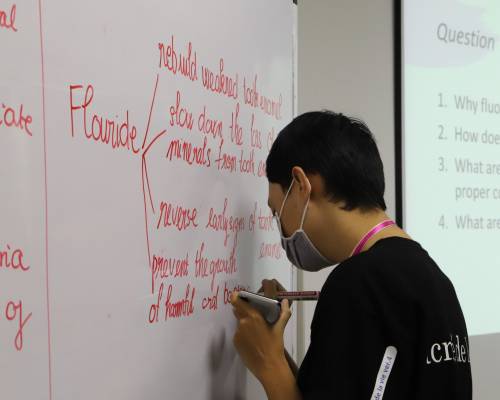 al
iate
nia
of
Flouride
rebuild weakned tooth enamel
slow down the loss of
minerals from tooth
reverse early signs of
prevent the growth
of harmful oral
Question
1. Why fluo
2. How doe
3. What are
proper co
4. What are
de la vie ver.4